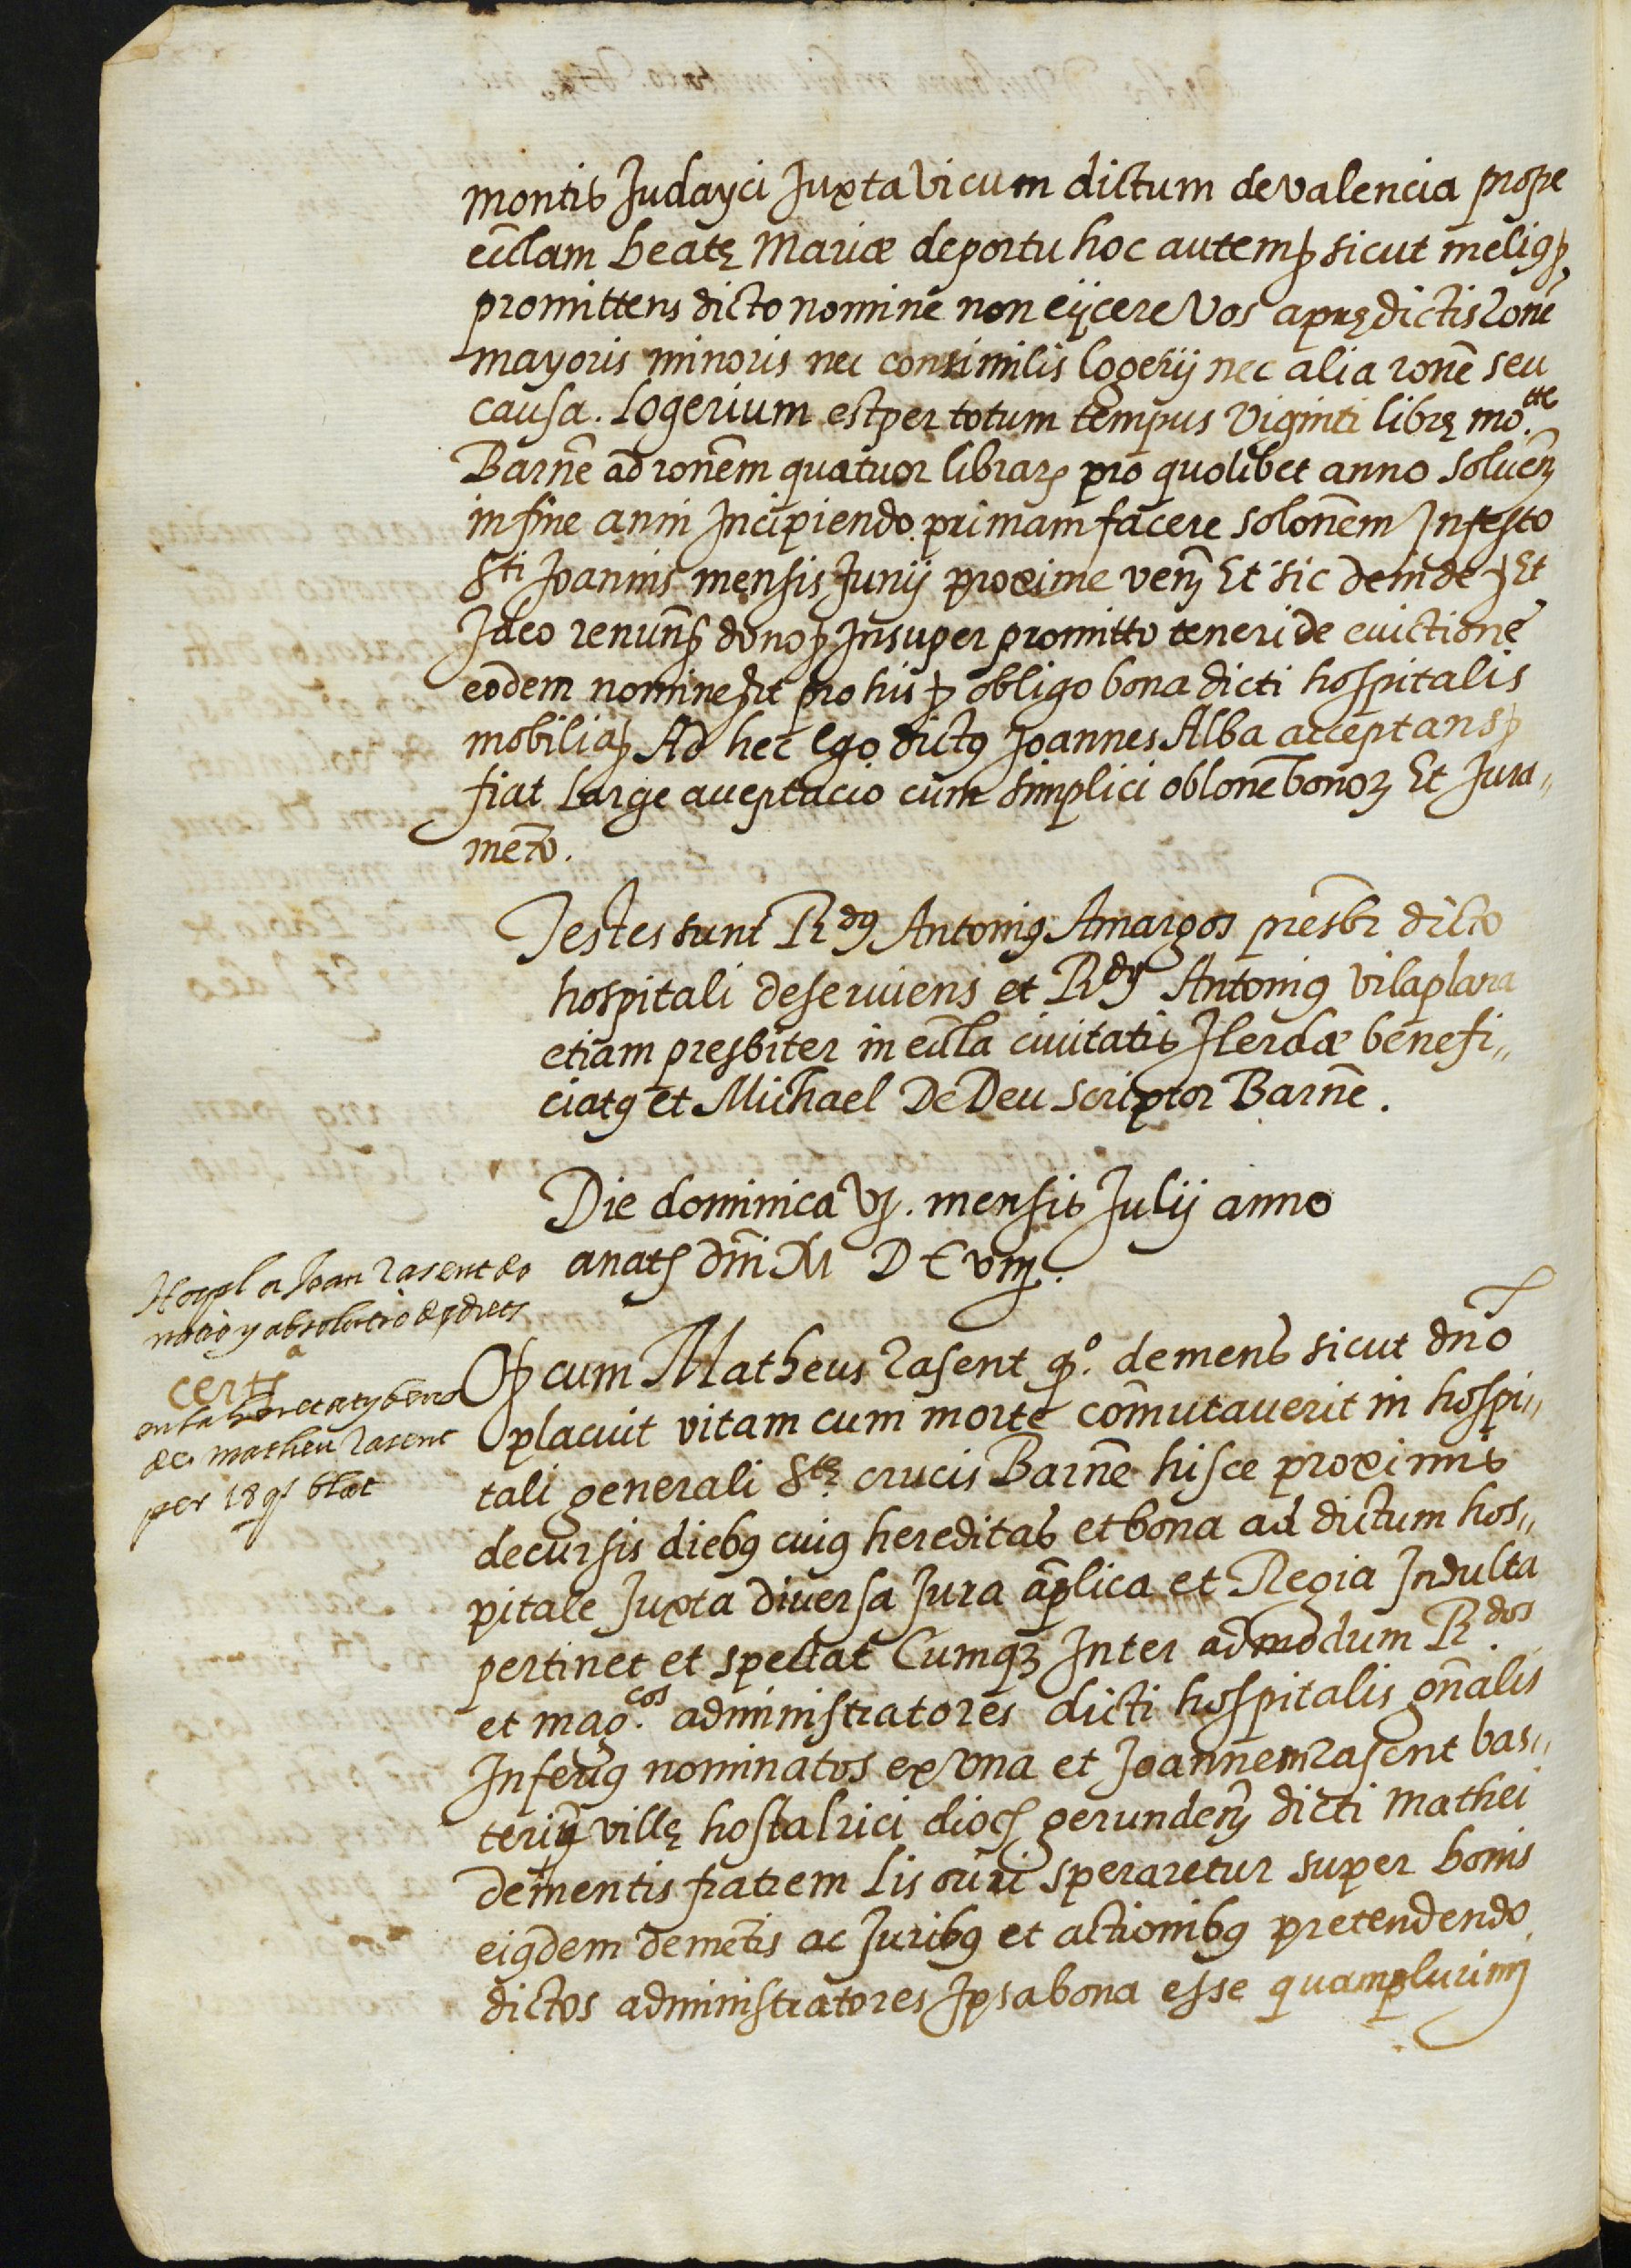 montis Judayci Juxta vicum dictum de valencia prope
eccl̄am beatę Mariæ de portu hoc autem ꝑ sicut meligꝫ
promittens dicto nomine non eijcere vos a prędictis rōne
mayoris minoris nec consimilis logerij nec alia rōne seu
causa. Logerium est per totum tempus viginti librę mo.^te
Barn̄e ad ronēm quatuor librarꝫ pro quolibet anno soluen̄
in fine anni Incipiendo primam facere solonēm In festo
S^ti Joannis mensis Junij proxime ven̄ Et sic deinde ꝫ Et
Ideo renun̄ ꝫ dono ꝫ Insuper promitto teneri de euictione
eodem nomine Et pro his ꝫ obligo bona dicti hospitalis
mobilia ꝫ Ad hec ego dictꝯ Joannes Alba acceptans ꝫ
fiat large acceptacio cum simplici oblonē bonoꝝ Et Jura„
mēto.
Testes sunt R^dꝯ Antoniꝯ Amargos presb̄r dicto
hospitali deseruiens et R^dꝯ Antoniꝯ vilaplana
etiam presbiter in eccl̄a ciuitatis Ilerdæ benefi„
ciatꝯ et Michael De Deu scriptor Barn̄e.
Die dominica vj. mensis Julij anno
a natꝭ dn̄i M D C viiij.
Hospl a Joan Rasent do
natio y absolutio de drets
certs
en la heretat y bens
de matheu Rasent
per 18 qꝭ blat
Oꝫ cum Matheus Rasent q.º demens sicut dn̄o
placuit vitam cum morte cōmutauerit in hospi„
tali generali S^tę crucis Barn̄e hisce proximis
decursis diebꝯ cuiꝯ hereditas et bona ad dictum hos„
pitale Juxta diuersa Jura ap̄lica et Regia Indulta
pertinet et spectat Cumqꝫ Inter admodum R.^dos
et mag.^cos administratores dicti hospitalis gn̄alis
Inferiꝯ nominatos ex vna et Joannem Rasent bas„
teriū villę hostalrici diocꝭ gerunden̄ dicti Mathei
dementis fratrem lis oriri speraretur super bonis
eiꝯdem demētis ac Juribꝯ et actionibꝯ pretendendo
dictos administratores Ipsa bona esse quamplurimū